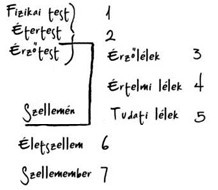 Fizikai test 1
Étertest 2
Érzőtest
Érzőlélek 3
Értelmi lélek 4
Szellemén
Tudati lélek 5
Életszellem 6
Szellemember 7